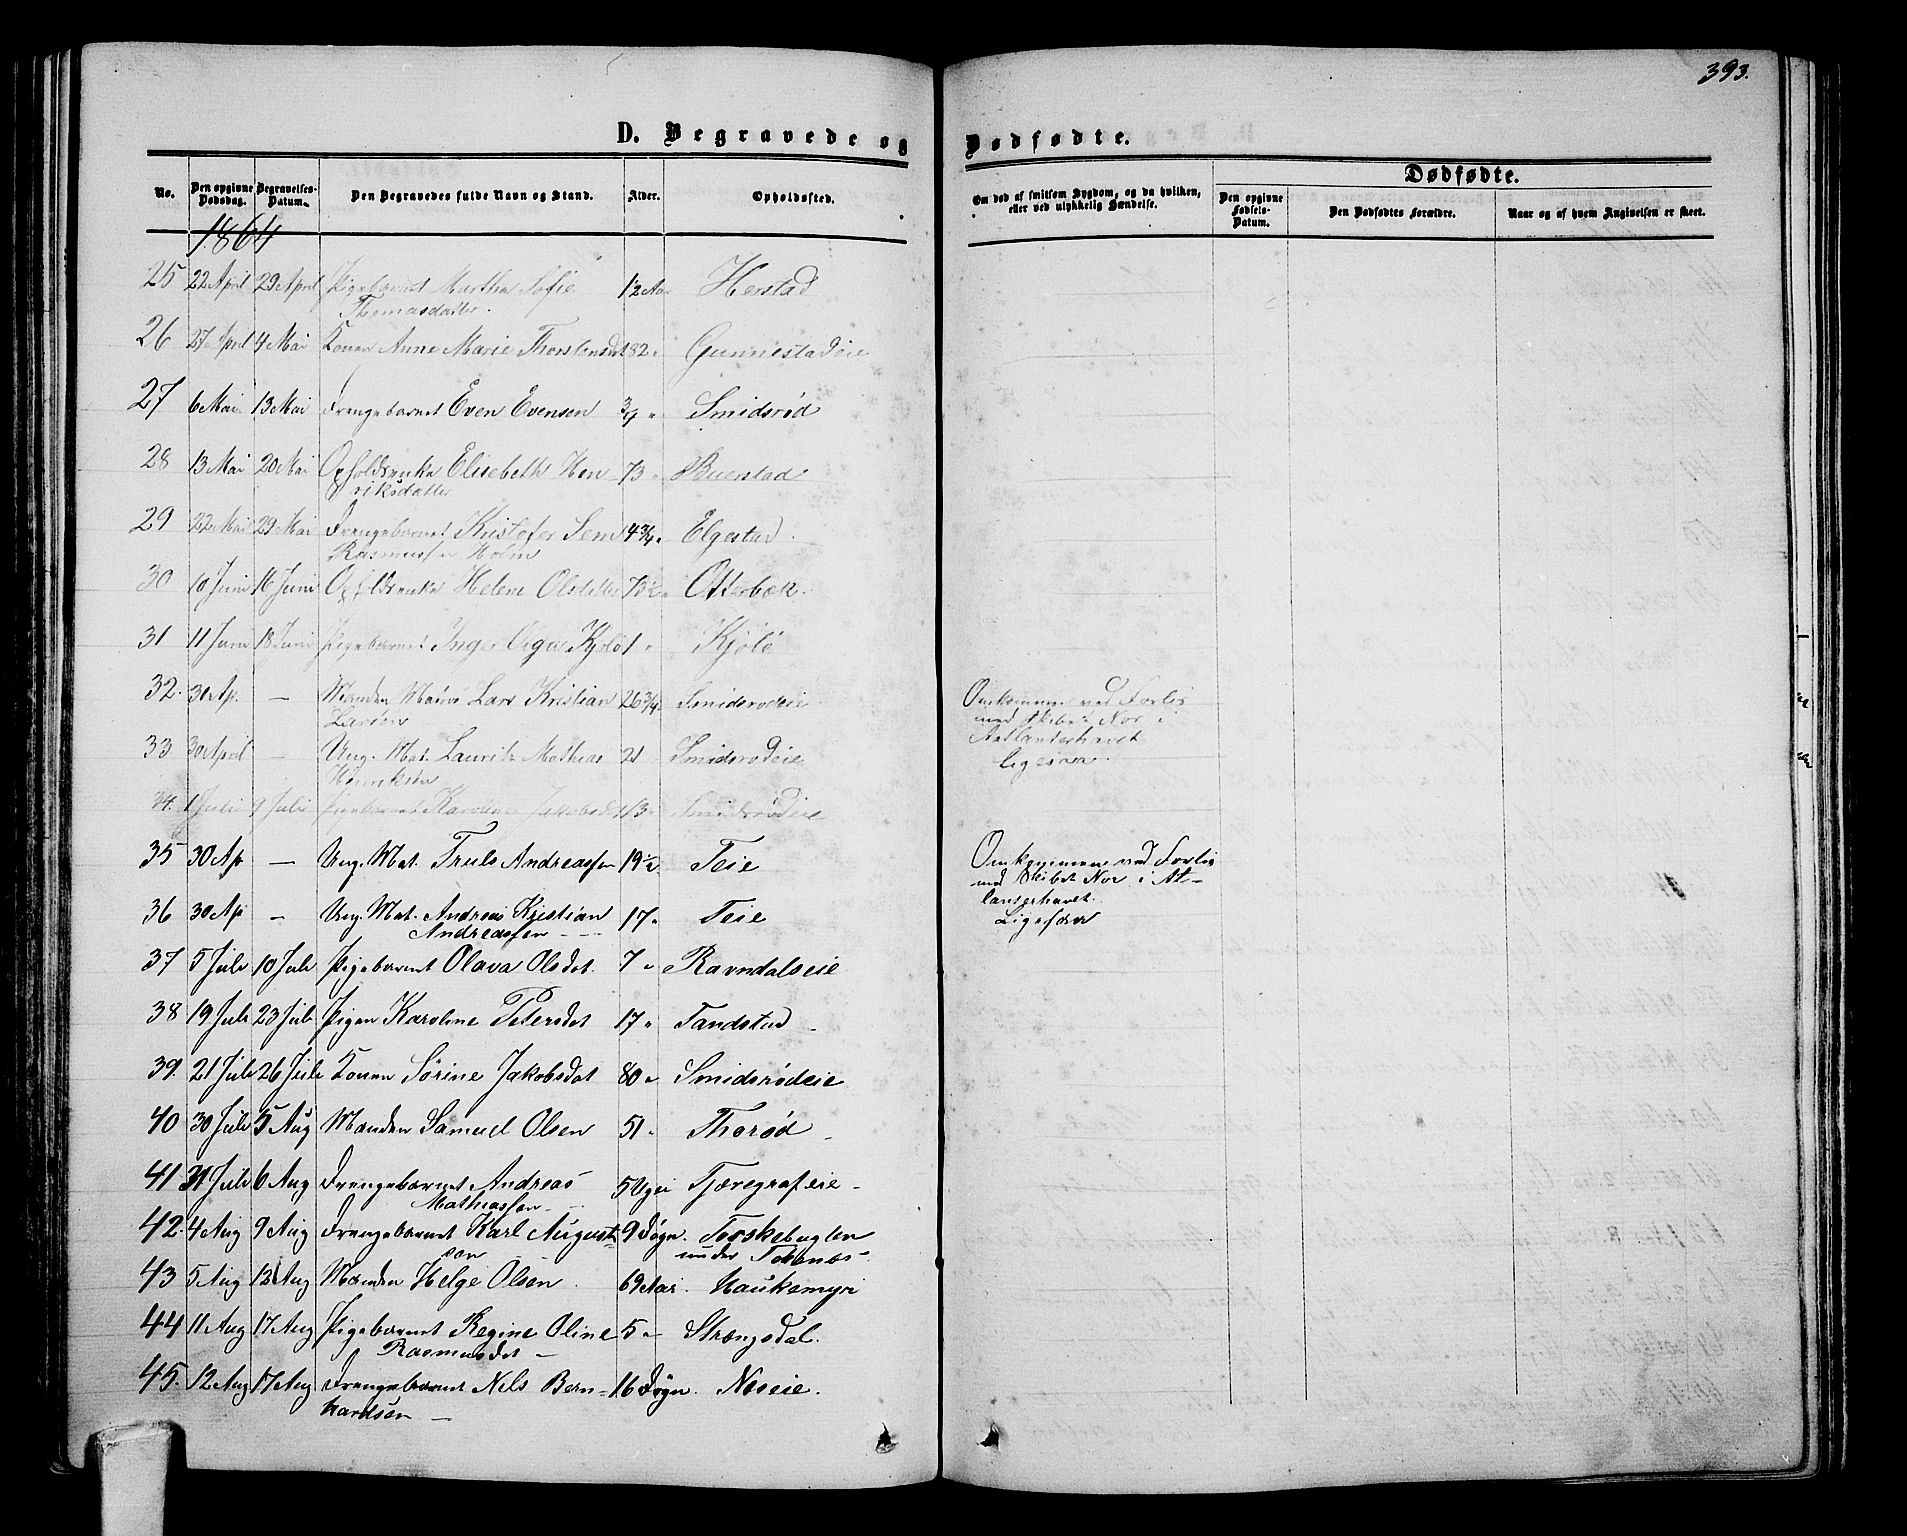 393.
D. Begravede og Dødfødte.
No. Den opgivne Dødsdag. Begravelses-Datum. Den Begravedes fulde Navn og Stand. Alder. Opholdssted. Om død af smitsom Sygdom, og da hvilken, eller ved ulykkelig Hændelse. Dødfødte. Den opgivne Fødsels-Datum. Den Dødfødtes Forældre. Naar og af hvem Angivelsen er skeet.
1864
25 22 April 29 April Pigebarnet Martha Sofie 1½ Aar Herstad
Thomasdatter.
26 27 April 4 Mai Konen Anne Marie Thorstensdt 82 " Gunnestadeie
27 6 Mai 13 Mai Drengebarnet Even Evensen " Smidsrød
28 13 Mai 20 Mai Opholdsenke Elisebeth Hen 73 " Buerstad
riksdatter
29 22 Mai 29 Mai Drengebarnet Kristofer Sem 4¾ " Elgestad.
Rasmussen Holm
30 10 Juni 16 Juni Opholdsenke Helene Olsdtter 73½ " Otterbæk.
31 11 Juni 18 Juni Pigebarnet Inger Olga Kjølø 1 " Kjølø
32. 30 Ap. — Manden Matros Lars Kristian 26¾ Smidsrødeie Omkommen ved Forlis
Larsen med Skibet Nor i
Atlanterhavet
33 30 April — Ung. Mat. Lauritz Mathias 21 Smidsrødeie ligesaa.
Henriksen
34. 1 Juli 9 Juli Pigebarnet Karoline Jakobsdt 1/3 " Smidsrødeie
35 30 Ap — Ung. Mat. Truls Andreassen 19½ Teie Omkommen ved Forlis
med Skibet Nor i At-
lanterhavet.
36 30 Ap — Ung. Mat. Andreas Kristian 17 " Teie Ligesaa
Andreassen
37 5 Juli 10 Juli Pigebarnet Olava Olsdat. 7 " Ravndalseie
38 19 Juli 23 Juli Pigen Karoline Petersdat 17 " Tandstad
39. 21 Juli 26 Juli Konen Sørine Jakobsdat 80 " Smidsrødeie
40 30 Juli 5 Aug Manden Samuel Olsen 51 " Thorød
41 31 Juli 6 Aug Drengebarnet Andreas 5 Uger Tjæregrafeie
Mathiassen
42. 4 Aug 9 Aug Drengebarnet Karl August- 9 Døgn. Torskebugten
sen under Tokenæs
43 5 Aug 12 Aug Manden Helge Olsen 69 Aar. Haukemyr
44 11 Aug 17 Aug Pigebarnet Regine Oline 5 " Strengsdal.
Rasmusdat
45. 12 Aug 17 Aug Drengebarnet Nils Bern- 16 Døgn. Neseie.
hardsen